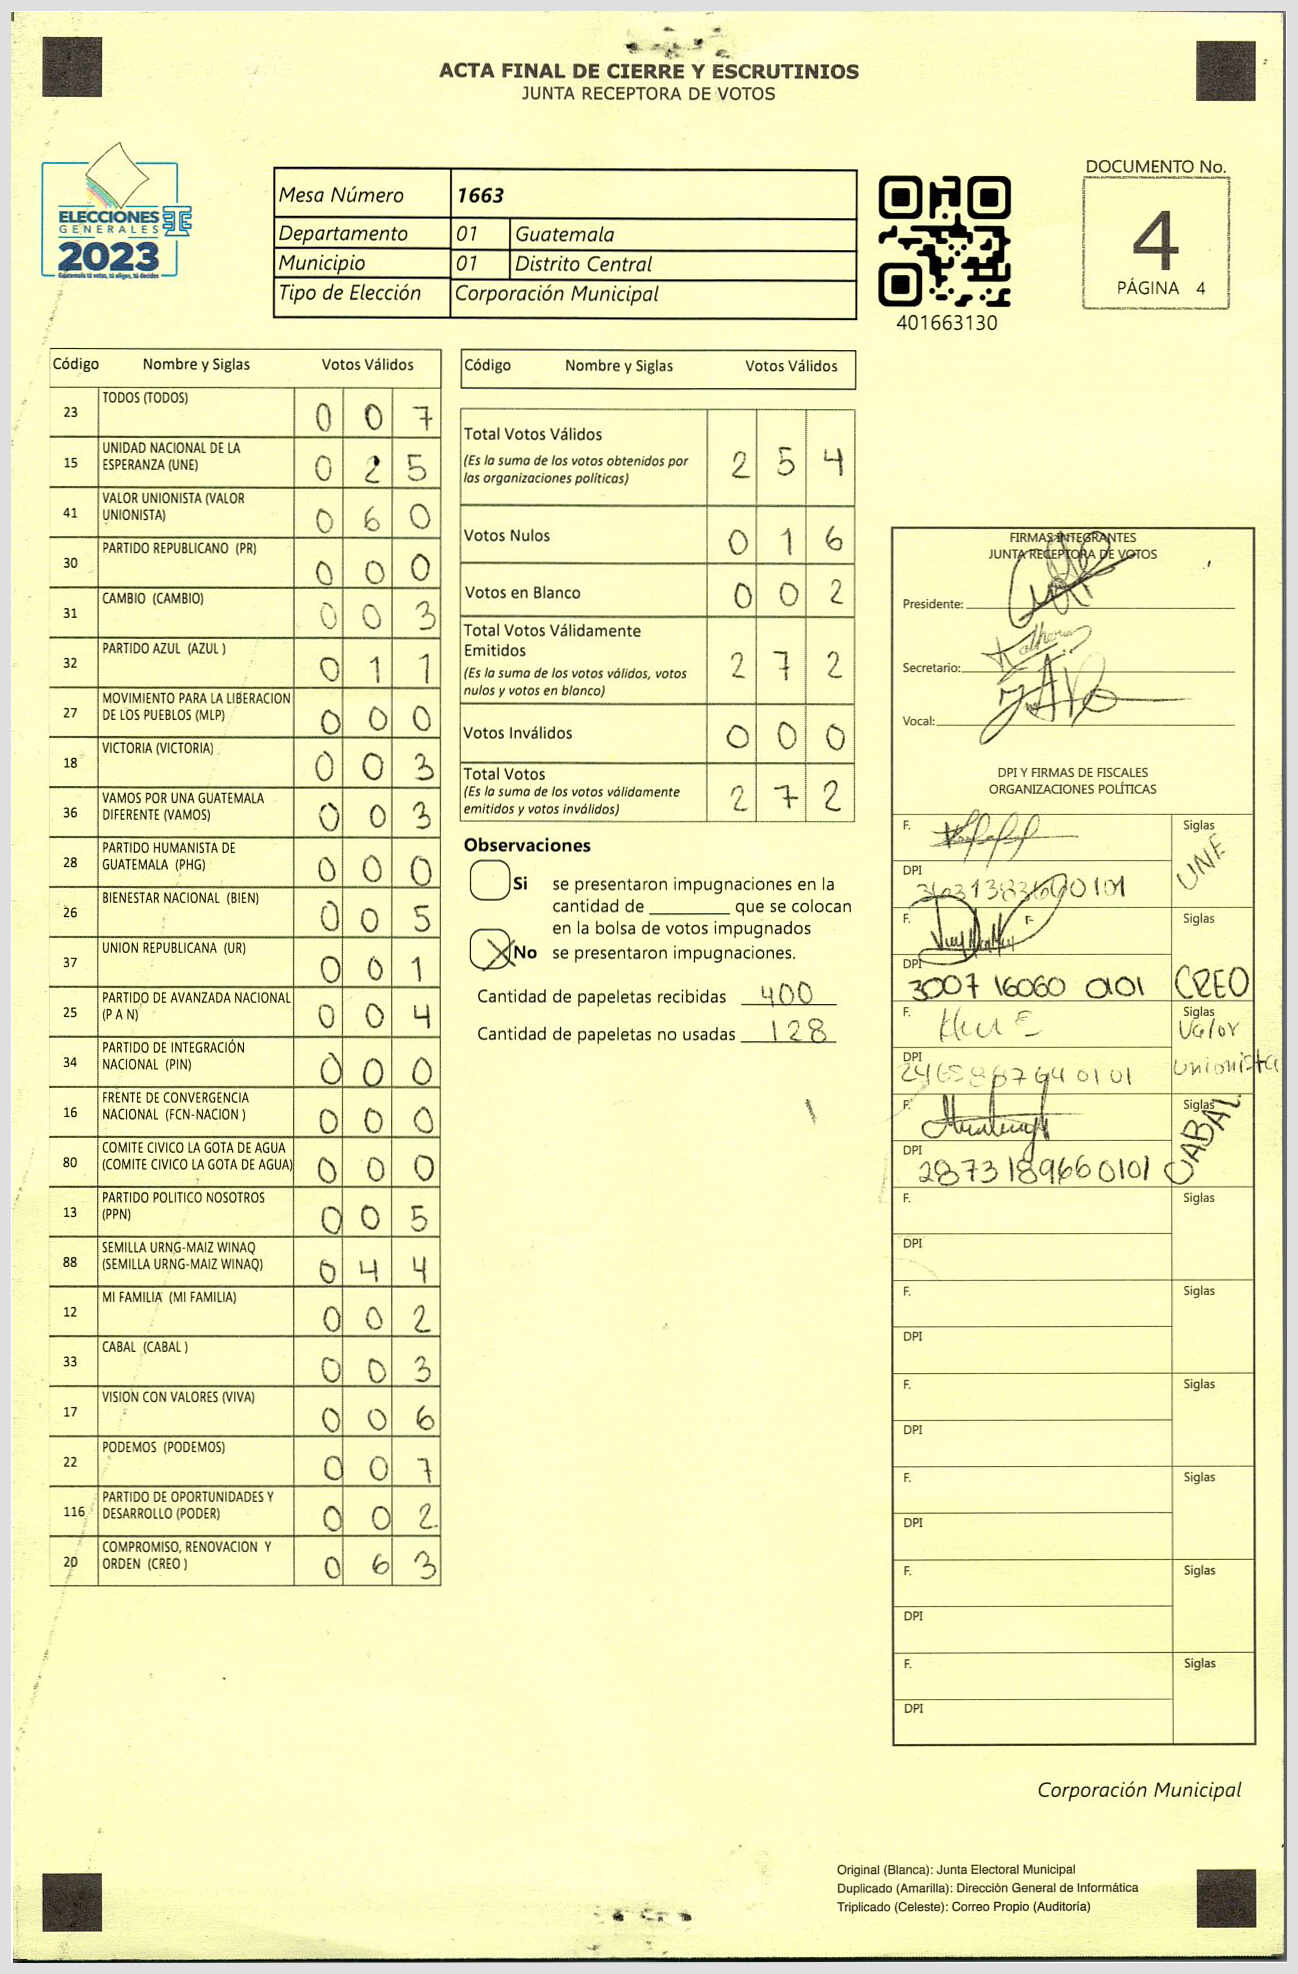 ACTA FINAL DE CIERRE Y ESCRUTINIOS
JUNTA RECEPTORA DE VOTOS
ELECCIONES
GENERALES
2023
Guatemala tú votas, tú eliges, tú decides
Mesa Número 1663
Departamento 01 Guatemala
Municipio 01 Distrito Central
Tipo de Elección Corporación Municipal
401663130
DOCUMENTO No.
4
PÁGINA 4
Código Nombre y Siglas Votos Válidos
23 TODOS (TODOS) 0 0 7
15 UNIDAD NACIONAL DE LA
ESPERANZA (UNE) 0 2 5
41 VALOR UNIONISTA (VALOR
UNIONISTA) 0 6 0
30 PARTIDO REPUBLICANO (PR) 0 0 0
31 CAMBIO (CAMBIO) 0 0 3
32 PARTIDO AZUL (AZUL ) 0 1 1
27 MOVIMIENTO PARA LA LIBERACION
DE LOS PUEBLOS (MLP) 0 0 0
18 VICTORIA (VICTORIA) 0 0 3
36 VAMOS POR UNA GUATEMALA
DIFERENTE (VAMOS) 0 0 3
28 PARTIDO HUMANISTA DE
GUATEMALA (PHG) 0 0 0
26 BIENESTAR NACIONAL (BIEN) 0 0 5
37 UNION REPUBLICANA (UR) 0 0 1
25 PARTIDO DE AVANZADA NACIONAL
(P A N) 0 0 4
34 PARTIDO DE INTEGRACIÓN
NACIONAL (PIN) 0 0 0
16 FRENTE DE CONVERGENCIA
NACIONAL (FCN-NACION ) 0 0 0
80 COMITE CIVICO LA GOTA DE AGUA
(COMITE CIVICO LA GOTA DE AGUA) 0 0 0
13 PARTIDO POLITICO NOSOTROS
(PPN) 0 0 5
88 SEMILLA URNG-MAIZ WINAQ
(SEMILLA URNG-MAIZ WINAQ) 0 4 4
12 MI FAMILIA (MI FAMILIA) 0 0 2
33 CABAL (CABAL ) 0 0 3
17 VISION CON VALORES (VIVA) 0 0 6
22 PODEMOS (PODEMOS) 0 0 7
116 PARTIDO DE OPORTUNIDADES Y
DESARROLLO (PODER) 0 0 2
20 COMPROMISO, RENOVACION Y
ORDEN (CREO ) 0 6 3
Código Nombre y Siglas Votos Válidos
Total Votos Válidos
(Es la suma de los votos obtenidos por
las organizaciones políticas) 2 5 4
Votos Nulos 0 1 6
Votos en Blanco 0 0 2
Total Votos Válidamente
Emitidos
(Es la suma de los votos válidos, votos
nulos y votos en blanco) 2 7 2
Votos Inválidos 0 0 0
Total Votos
(Es la suma de los votos válidamente
emitidos y votos inválidos) 2 7 2
Observaciones
Si se presentaron impugnaciones en la
cantidad de ________ que se colocan
en la bolsa de votos impugnados
X No se presentaron impugnaciones.
Cantidad de papeletas recibidas 400
Cantidad de papeletas no usadas 128
FIRMAS INTEGRANTES
JUNTA RECEPTORA DE VOTOS
Presidente:
Secretario:
Vocal:
DPI Y FIRMAS DE FISCALES
ORGANIZACIONES POLÍTICAS
F. Siglas
UNE
DPI
F. Siglas
DPI
3007 16060 0101 CREO
F. Siglas
Valor
Unionista
DPI
F. Siglas
CABAL
DPI
2873 18966 0101
F. Siglas
DPI
F. Siglas
DPI
F. Siglas
DPI
F. Siglas
DPI
F. Siglas
DPI
F. Siglas
DPI
Corporación Municipal
Original (Blanca): Junta Electoral Municipal
Duplicado (Amarilla): Dirección General de Informática
Triplicado (Celeste): Correo Propio (Auditoría)